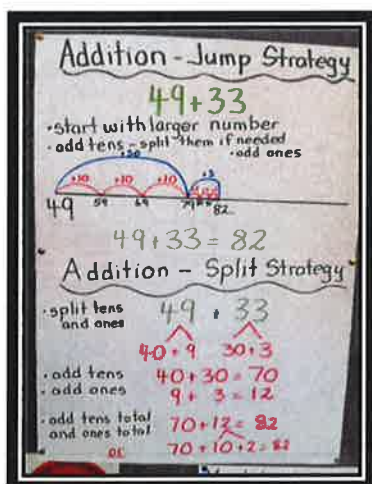 Addition - Jump Strategy
49+33
• start with larger number
• add tens - split them if needed
• add ones
+30
+3
+10 +10 +10
49 59 69 79 82
49+33 = 82
Addition - Split Strategy
• split tens and ones
49 + 33
40+9 30+3
• add tens 40+30=70
• add ones 9+3=12
• add tens total 70+12=82
and ones total
70+10+2=82